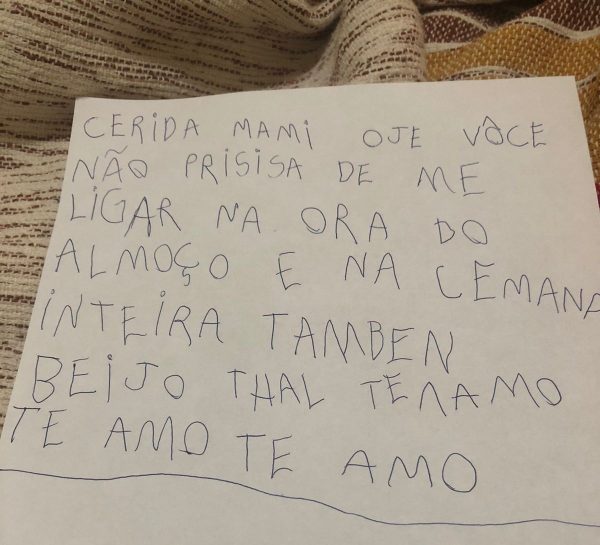 CERIDA MAMI OJE VOCE
NÃO PRISISA DE ME
LIGAR NA ORA DO
ALMOÇO E NA CEMANA
INTEIRA TAMBEN
BEIJO THAL TENAMO
TE AMO TE AMO